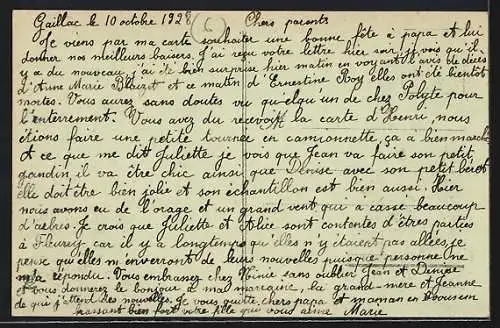 Gaillac le 10 octobre 1928
Chers parents
Je viens par ma carte souhaiter une bonne fête à papa et lui
donner nos meilleurs baisers. j'ai reçu votre lettre hier soir, je vois qu'il
y a du nouveau, j'ai été bien surprise hier matin en voyant l'avis de décès
d'Anne Marie et ce matin d'Ernestine Roy elles ont été bientôt
mortes. Vous aurez sans doutes vu quelqu'un de chez pour
l'enterrement. Vous avez du recevoir la carte d'Henri, nous
étions faire une petite tournée en camionnette, ça a bien marché
et ce que me dit Juliette je vois que Jean va faire son petit
gandin, il va être chic ainsi que Denise avec son petit béret
elle doit être bien jolie et son échantillon est bien aussi. Hier
nous avons eu de l'orage et un grand vent qui a cassé beaucoup
d'arbres. Je crois que Juliette et Alice sont contentes d'êtres parties
à Fleurey car il y a longtemps qu'elles n'y étaient pas allées, je
pense qu'elles m'enverront de leurs nouvelles puisque personne ne
m'a répondu. Vous embrassez chez sans oublier Jean et Denise
et vous donnerez le bonjour à ma marraine, la grand-mère et Jeanne
de qui j'attend des nouvelles. Je vous quitte, chers papa et maman en vous em
brassant bien fort votre fille qui vous aime Marie